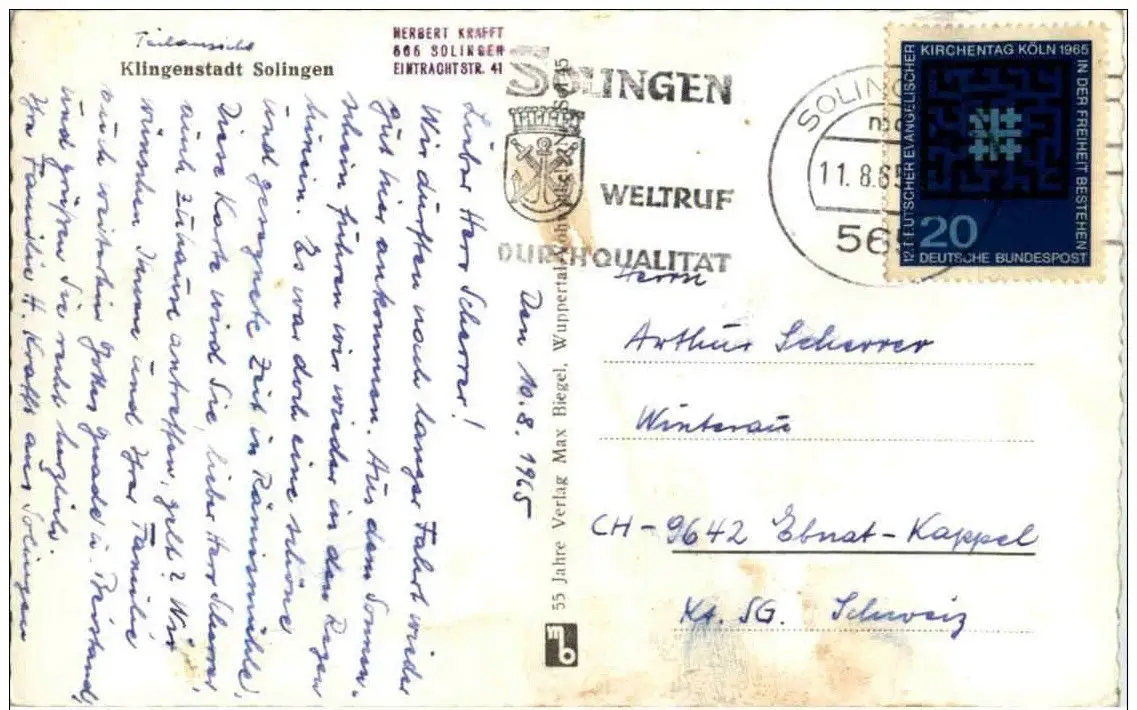 Teilansicht
Klingenstadt Solingen
HERBERT KRAFFT
565 SOLINGEN
EINTRACHTSTR. 41
SOLINGEN
WELTRUF
DURCH QUALITÄT
SOLINGEN
11.8.65
565
12. DEUTSCHER EVANGELISCHER KIRCHENTAG KÖLN 1965
IN DER FREIHEIT BESTEHEN
20
DEUTSCHE BUNDESPOST
Den 10.8.1965
Lieber Herr Scherrer!
Wir durften nach langer Fahrt wieder
gut hier ankommen. Aus dem Sonnen-
schein fuhren wir wieder in den Regen
hinein. Es war doch eine schöne
und gesegnete Zeit in Rämismühle.
Diese Karte wird Sie, lieber Herr Scherrer,
auch zuhause antreffen, gelt? Wir
wünschen Ihnen und Ihrer Familie
auch weiterhin Gottes Gnade u. Beistand,
und grüßen Sie recht herzlich.
Ihre Familie H. Krafft aus Solingen
55 Jahre Verlag Max Biegel, Wuppertal-Vohwinkel
mb
Herrn
Arthur Scherrer
Winterau
CH-9642 Ebnat-Kappel
Kt. SG. Schweiz